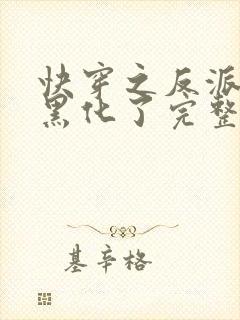 快穿之反派
黑化了完整
基辛格